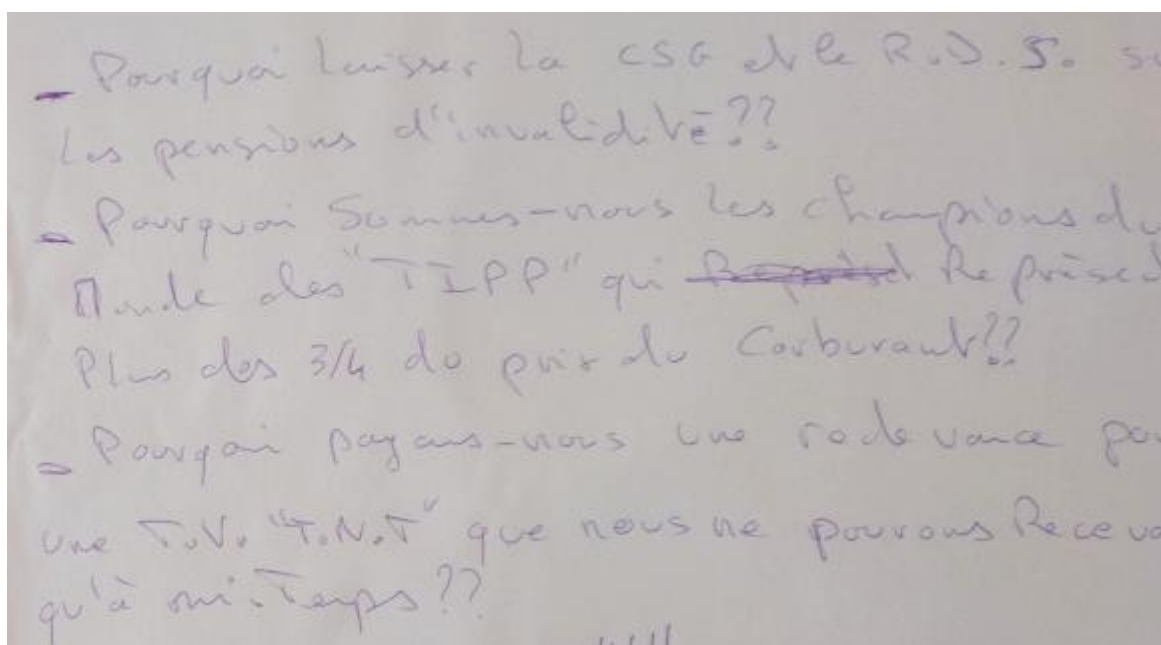 - Pourquoi laisser la CSG et le R.D.S. su
Les pensions d'invalidité??
- Pourquoi Sommes-nous les champions du
Monde des "TIPP" qui Représent
Plus des 3/4 du prix du Carburant??
- Pourquoi payons-nous une redevance pou
une T.V. "T.N.T" que nous ne pouvons Recevo
qu'à mi-Temps??